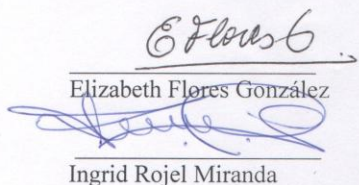 E Flores G.
Elizabeth Flores González
Ingrid Rojel Miranda